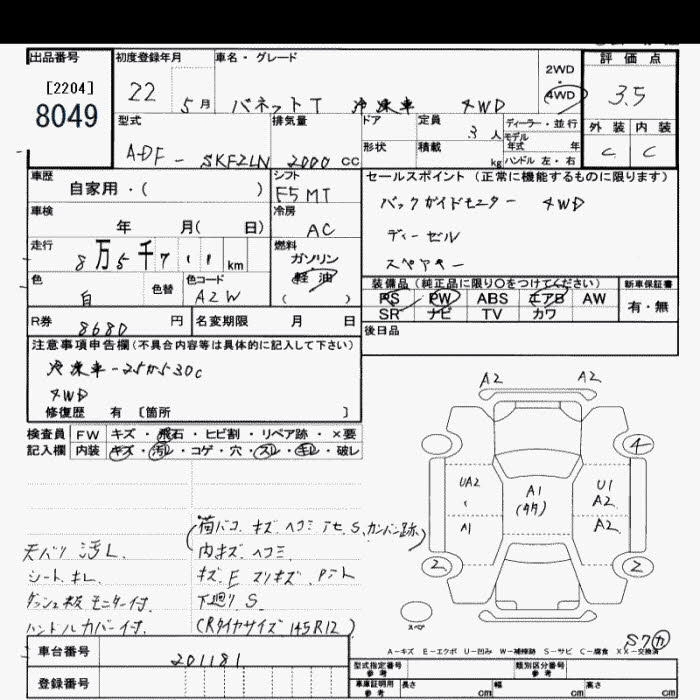 出品番号
[2204]
8049
初度登録年月
22 5月
車名・グレード
バネットT 冷凍車 4WD
2WD
・
4WD
評価点
3.5
外装 内装
C C
型式
ADF - SKF2LN
排気量
2000 cc
ドア
形状
定員
3人
積載
kg
ディーラー・並行
モデル
年式 年
ハンドル 左・右
車歴
自家用・( )
シフト
F5MT
セールスポイント (正常に機能するものに限ります)
バックガイドモニター 4WD
ディーゼル
スペアキー
車検
年 月( 日)
冷房
AC
走行
8万5千7 km
燃料
ガソリン
軽油
( )
色
白
色替
色コード
A2W
装備品 (純正品に限り〇をつけてください)
PS PW ABS エアB AW
SR ナビ TV カワ
新車保証書
有・無
R券
8680 円
名変期限 月 日
後日品
注意事項申告欄(不具合内容等は具体的に記入して下さい)
冷凍車-25から30c
4WD
修復歴 有 〔箇所 〕
検査員 FW キズ・飛石・ヒビ割・リペア跡・×要
記入欄 内装 キズ・汚レ・コゲ・穴・スレ・キレ・破レ
(荷バコ キズ ヘコミ アセ S、カンバン跡)
天バリ 汚レ 内キズ ヘコミ
シート キレ キズ E スリキズ
ダッシュ板 モニター付 下廻リ S
ハンドルカバー付 (Rタイヤサイズ 145R12)
A2 A2
4
UA2 A1 U1
A2
A1 A2
2 2
スペア
S7
A-キズ E-エクボ U-凹み W-補修跡 S-サビ C-腐食 XX-交換済
車台番号
201181
登録番号
型式指定番号
参考
類別区分番号
参考
車庫証明用
参考
長さ cm 幅 cm 高さ cm